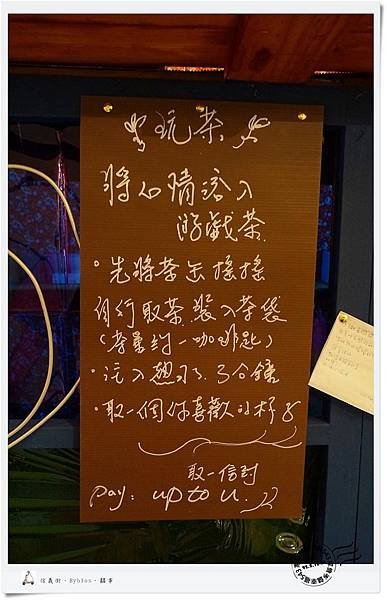 玩茶
將心情溶入
游戲茶.
·先將茶缶搖搖
自行取茶.裝入茶袋
(茶量約一咖啡匙)
·注入熱水3分鐘
·取一個你喜歡的杯子
取一信封
pay: up to u.
信義街·Byblos·囍事